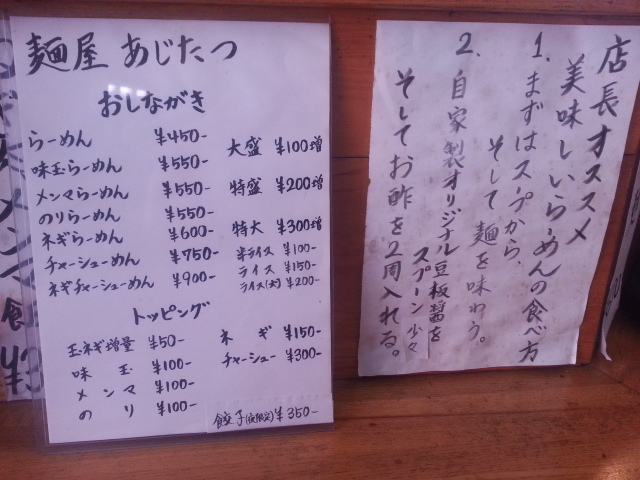 麺屋 あじたつ
おしながき
らーめん ¥450-
味玉らーめん ¥550-
メンマらーめん ¥550-
のりらーめん ¥550-
ネギらーめん ¥600-
チャーシューめん ¥750-
ネギチャーシューめん ¥900-
大盛 ¥100増
特盛 ¥200増
特大 ¥300増
半ライス ¥100-
ライス ¥150-
ライス(大) ¥200-
トッピング
玉ネギ増量 ¥50-
味玉 ¥100-
メンマ ¥100-
のり ¥100-
ネギ ¥150-
チャーシュー ¥300-
餃子(夜限定) ¥350-
店長オススメ
美味しいらーめんの食べ方
1. まずはスープから、
そして麺を味わう。
2. 自家製オリジナル豆板醤を
スプーン少々
そしてお酢を2周入れる。